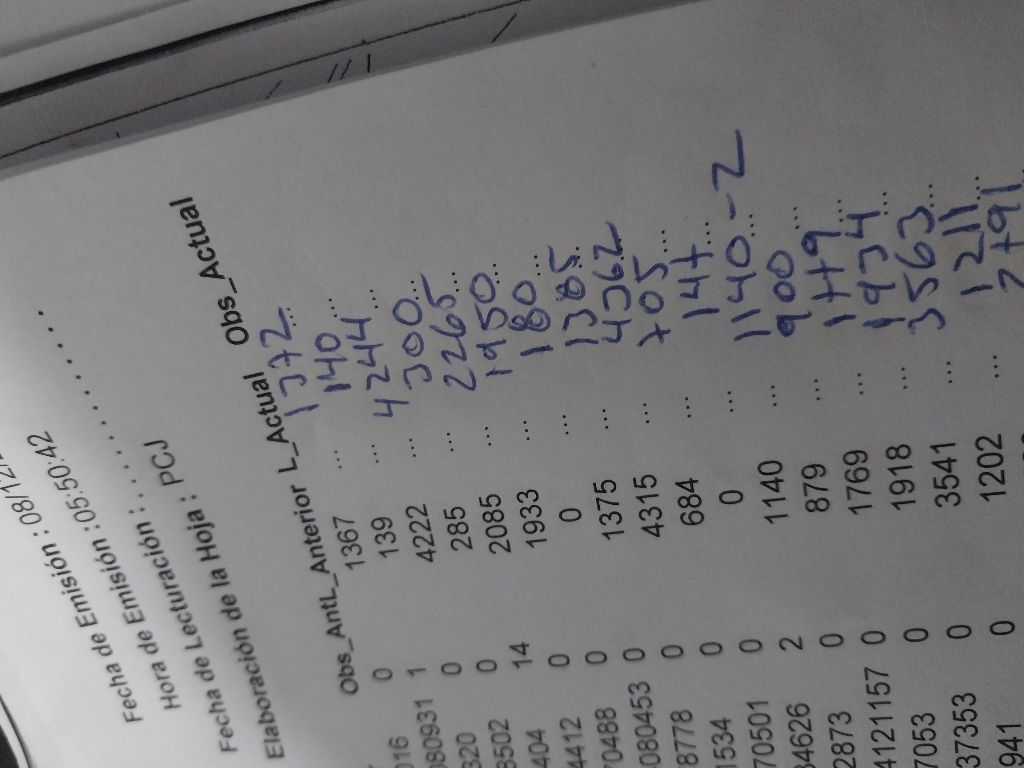 Fecha de Emisión : 08/12/
Hora de Emisión : 05:50:42
Fecha de Lecturación : . . . . . . . . . . .
Elaboración de la Hoja : PCJ
Obs_Ant L_Anterior L_Actual Obs_Actual
016 0 1367 ... 1372 ...
080931 1 139 ... 140 ...
320 0 4222 ... 4244 ...
8502 0 285 ... 300 ...
404 14 2085 ... 2265 ...
4412 0 1933 ... 1950 ...
70488 0 0 ... 180 ...
080453 0 1375 ... 1385 ...
8778 0 4315 ... 4362 ...
1534 0 684 ... 705 ...
70501 0 0 ... 147 ...
34626 2 1140 ... 1140 ... -2
22873 0 879 ... 900 ...
4121157 0 1769 ... 1779 ...
7053 0 1918 ... 1934 ...
37353 0 3541 ... 3563 ...
941 0 1202 ... 1211 ...
2791